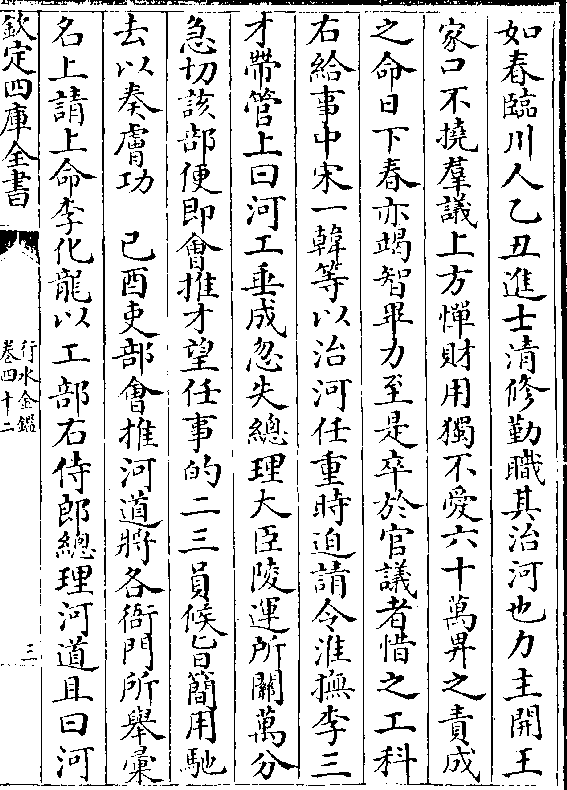 如春臨川人乙丑進士清修勤職其治河也力主開王
家口不撓羣議上方憚財用獨不愛六十萬畀之責成
之命日下春亦竭智畢力至是卒於官議者惜之工科
右給事中宋一韓等以治河任重時迫請令淮撫李三
才帶管上曰河工垂成忽失總理大臣陵運所關萬分
急切該部便即會推才望任事的二三員候旨簡用馳
去以奏膚功　己酉吏部會推河道將各衙門所舉彙
名上請上命李化龍以工部右侍郎總理河道且曰河
欽定四庫全書
行水金鑑
卷四十二
三